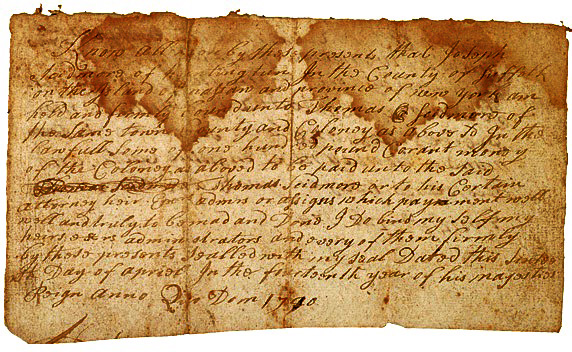 Know All men by these presents that Joseph
Scidmore of Huntingtun In the County of Suffolk
on the Island of nassau and province of new york am
hold and firmly bound unto Thomas Scidmore of
the Same town County and Coloney as above sd In the
Lawfull Some of one hundred pound Carant money
of the Coloney as abovesd to be paid unto the said
Thomas Scidmore or to his Certain
attorney heir Exer admrs or assigns which payment well
well and truly to be and Done I Do bind my self my
heirs exers administrators and every of them firmly
by these presents sealled with my seal Dated this
th Day of apriel In the fourteenth year of his majesties
Reign Anno Dom 1740